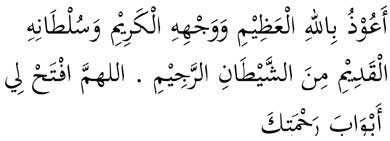 أَعُوْذُ بِاللهِ الْعَظِيْمِ وَوَجْهِهِ الْكَرِيْمِ وَسُلْطَانِهِ
الْقَدِيْمِ مِنَ الشَّيْطَانِ الرَّجِيْمِ . اللهمَّ افْتَحْ لِي
أَبْوَابَ رَحْمَتِكَ